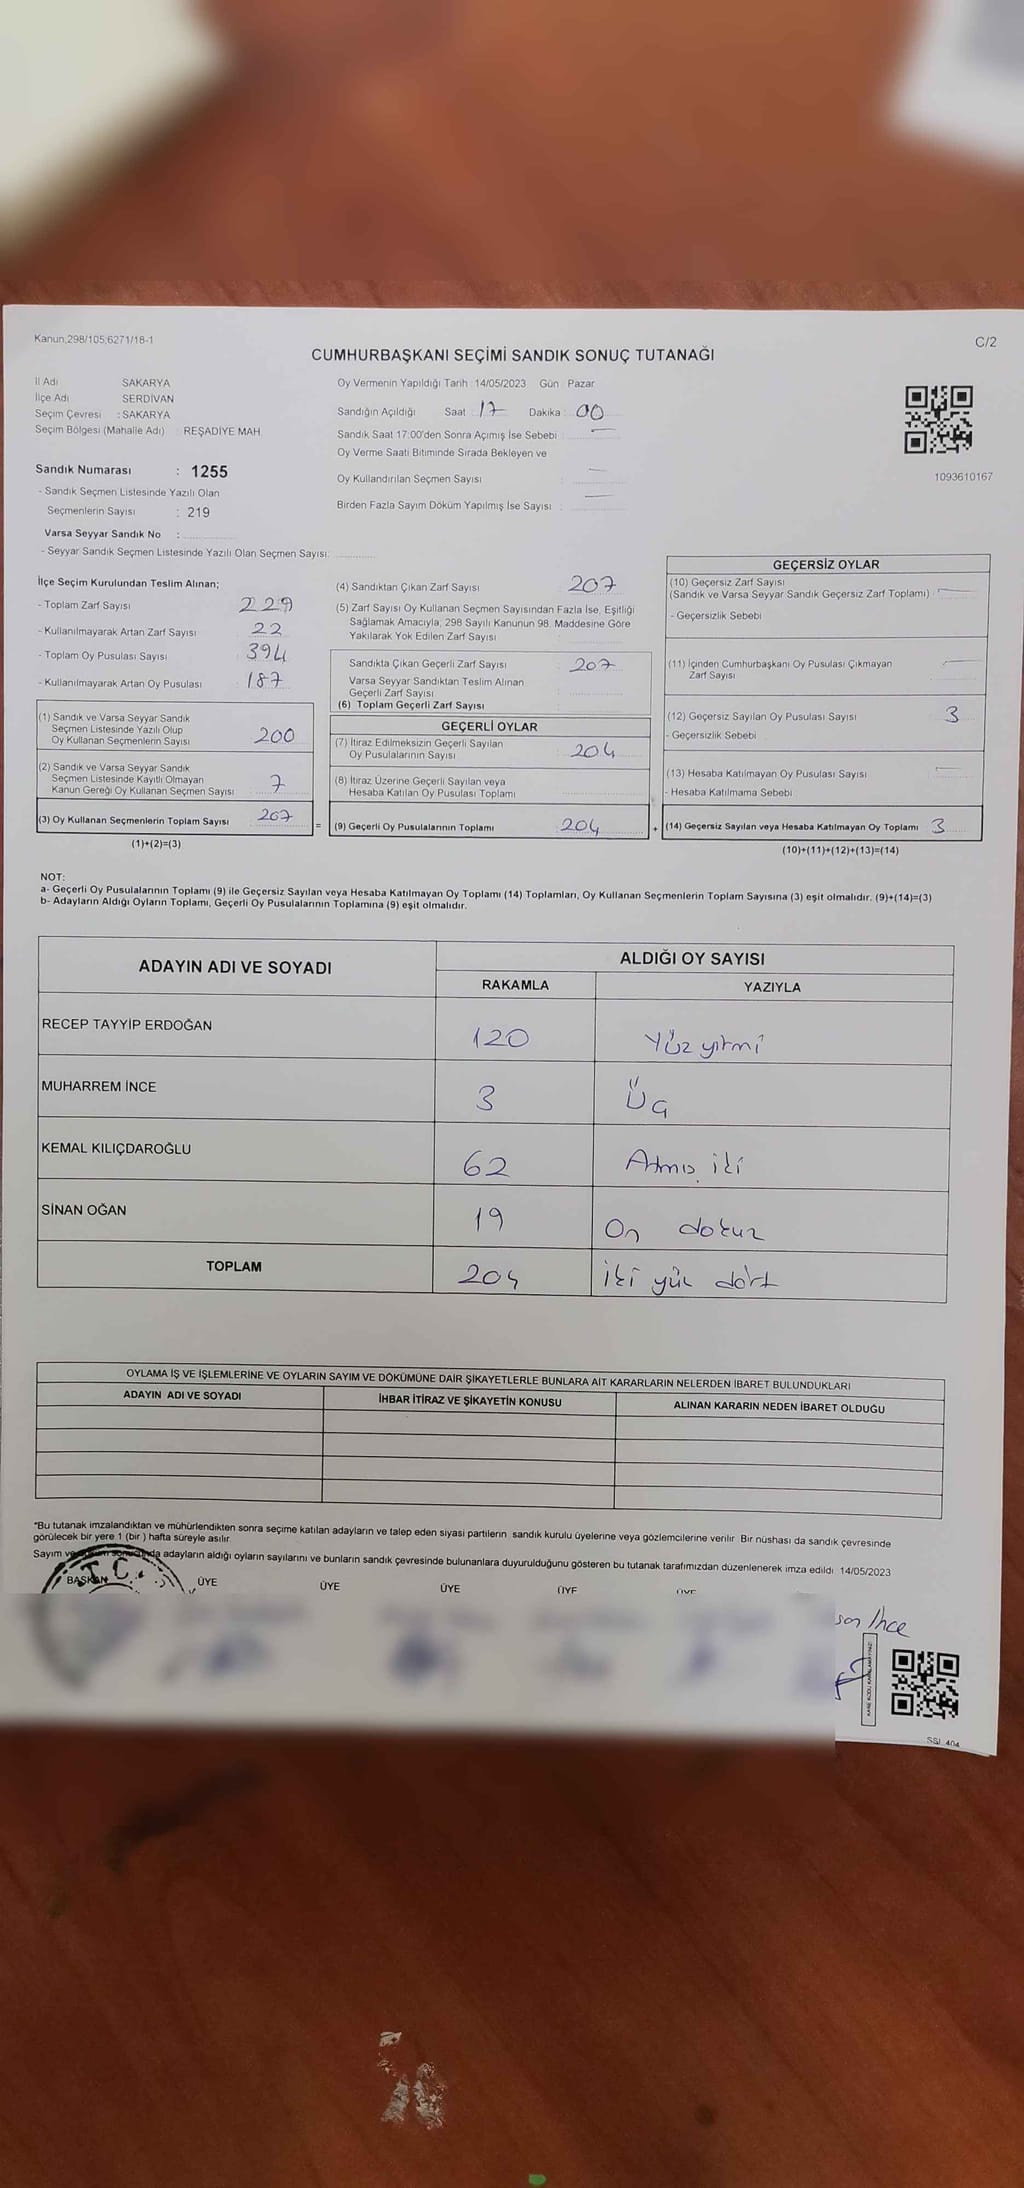 Kanun,298/105;6271/18-1
C/2
CUMHURBAŞKANI SEÇİMİ SANDIK SONUÇ TUTANAĞI
İl Adı SAKARYA
İlçe Adı SERDİVAN
Seçim Çevresi : SAKARYA
Seçim Bölgesi (Mahalle Adı) : REŞADİYE MAH.
Sandık Numarası : 1255
- Sandık Seçmen Listesinde Yazılı Olan
Seçmenlerin Sayısı : 219
Varsa Seyyar Sandık No :
- Seyyar Sandık Seçmen Listesinde Yazılı Olan Seçmen Sayısı:
Oy Vermenin Yapıldığı Tarih : 14/05/2023 Gün : Pazar
Sandığın Açıldığı Saat : 17 Dakika : 00
Sandık Saat 17:00'den Sonra Açımış İse Sebebi :
Oy Verme Saati Bitiminde Sırada Bekleyen ve
Oy Kullandırılan Seçmen Sayısı :
Birden Fazla Sayım Döküm Yapılmış İse Sayısı :
1093610167
İlçe Seçim Kurulundan Teslim Alınan;
- Toplam Zarf Sayısı 229
- Kullanılmayarak Artan Zarf Sayısı 22
- Toplam Oy Pusulası Sayısı 394
- Kullanılmayarak Artan Oy Pusulası 187
(1) Sandık ve Varsa Seyyar Sandık
Seçmen Listesinde Yazılı Olup
Oy Kullanan Seçmenlerin Sayısı 200
(2) Sandık ve Varsa Seyyar Sandık
Seçmen Listesinde Kayıtlı Olmayan
Kanun Gereği Oy Kullanan Seçmen Sayısı 7
(3) Oy Kullanan Seçmenlerin Toplam Sayısı 207
(1)+(2)=(3)
(4) Sandıktan Çıkan Zarf Sayısı 207
(5) Zarf Sayısı Oy Kullanan Seçmen Sayısından Fazla İse, Eşitliği
Sağlamak Amacıyla, 298 Sayılı Kanunun 98. Maddesine Göre
Yakılarak Yok Edilen Zarf Sayısı
Sandıkta Çıkan Geçerli Zarf Sayısı 207
Varsa Seyyar Sandıktan Teslim Alınan
Geçerli Zarf Sayısı
(6) Toplam Geçerli Zarf Sayısı
GEÇERLİ OYLAR
(7) İtiraz Edilmeksizin Geçerli Sayılan
Oy Pusulalarının Sayısı 204
(8) İtiraz Üzerine Geçerli Sayılan veya
Hesaba Katılan Oy Pusulası Toplamı
= (9) Geçerli Oy Pusulalarının Toplamı 204
GEÇERSİZ OYLAR
(10) Geçersiz Zarf Sayısı
(Sandık ve Varsa Seyyar Sandık Geçersiz Zarf Toplamı)
- Geçersizlik Sebebi
(11) İçinden Cumhurbaşkanı Oy Pusulası Çıkmayan
Zarf Sayısı
(12) Geçersiz Sayılan Oy Pusulası Sayısı 3
- Geçersizlik Sebebi
(13) Hesaba Katılmayan Oy Pusulası Sayısı
- Hesaba Katılmama Sebebi
+ (14) Geçersiz Sayılan veya Hesaba Katılmayan Oy Toplamı 3
(10)+(11)+(12)+(13)=(14)
NOT:
a- Geçerli Oy Pusulalarının Toplamı (9) ile Geçersiz Sayılan veya Hesaba Katılmayan Oy Toplamı (14) Toplamları, Oy Kullanan Seçmenlerin Toplam Sayısına (3) eşit olmalıdır. (9)+(14)=(3)
b- Adayların Aldığı Oyların Toplamı, Geçerli Oy Pusulalarının Toplamına (9) eşit olmalıdır.
ADAYIN ADI VE SOYADI ALDIĞI OY SAYISI
RAKAMLA YAZIYLA
RECEP TAYYİP ERDOĞAN 120 Yüz yirmi
MUHARREM İNCE 3 Üç
KEMAL KILIÇDAROĞLU 62 Atmış iki
SİNAN OĞAN 19 On dokuz
TOPLAM 204 İki yüz dört
OYLAMA İŞ VE İŞLEMLERİNE VE OYLARIN SAYIM VE DÖKÜMÜNE DAİR ŞİKAYETLERLE BUNLARA AİT KARARLARIN NELERDEN İBARET BULUNDUKLARI
ADAYIN ADI VE SOYADI İHBAR İTİRAZ VE ŞİKAYETİN KONUSU ALINAN KARARIN NEDEN İBARET OLDUĞU
*Bu tutanak imzalandıktan ve mühürlendikten sonra seçime katılan adayların ve talep eden siyasi partilerin sandık kurulu üyelerine veya gözlemcilerine verilir. Bir nüshası da sandık çevresinde
görülecek bir yere 1 (bir) hafta süreyle asılır.
Sayım ve döküm sonucunda adayların aldığı oyların sayılarını ve bunların sandık çevresinde bulunanlara duyurulduğunu gösteren bu tutanak tarafımızdan düzenlenerek imza edildi. 14/05/2023
T.C.
BAŞKAN ÜYE ÜYE ÜYE ÜYE ÜYE
İnce
KARE KODU KARALAMAYINIZ!
SSI_404